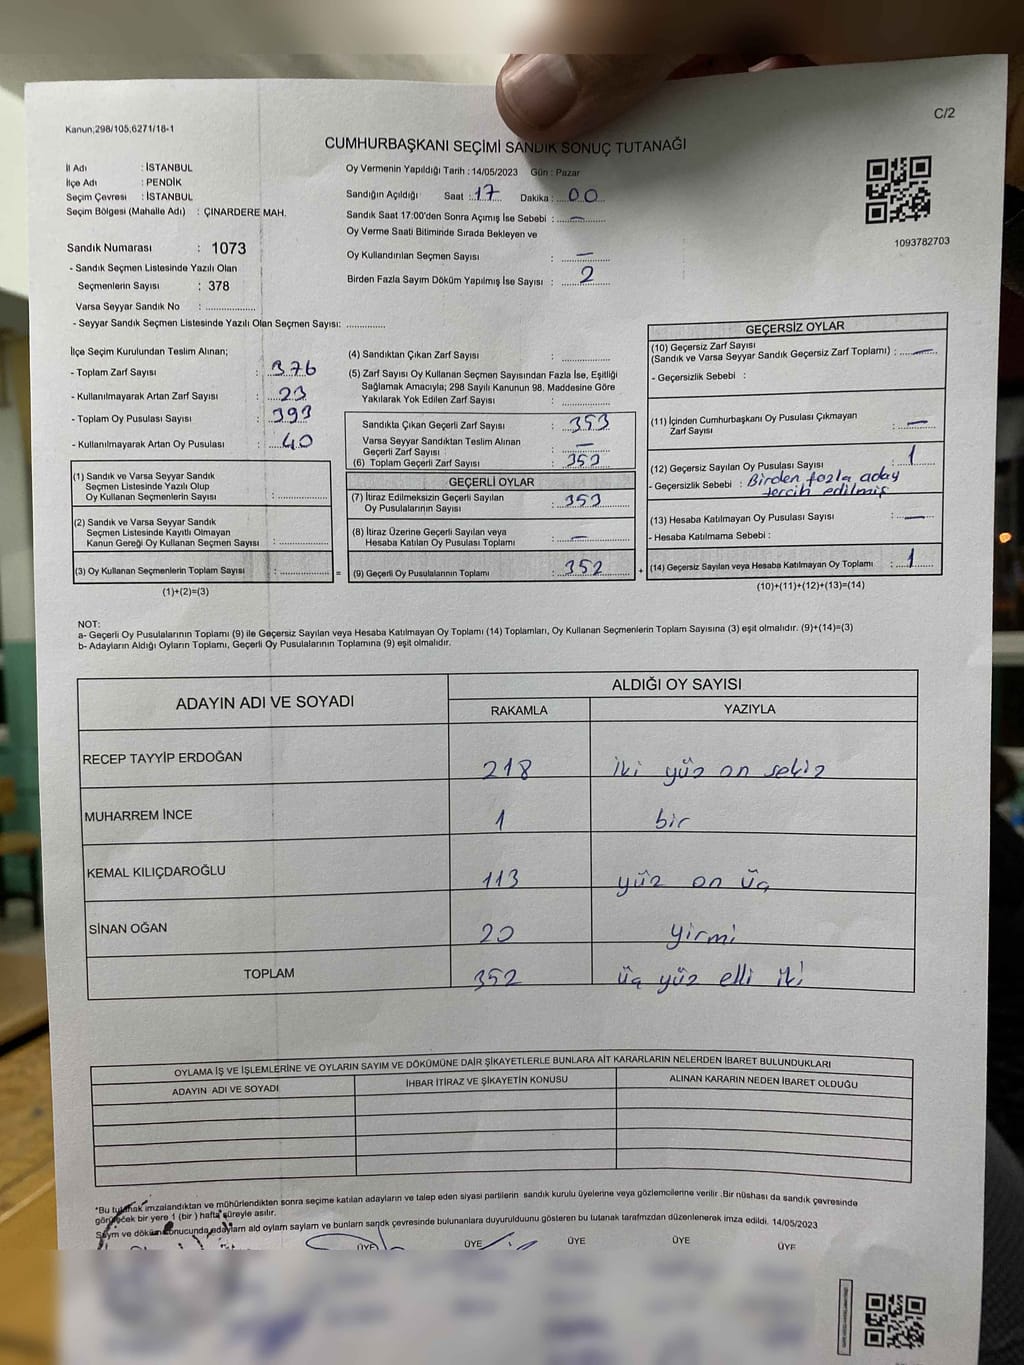 C/2
Kanun;298/105,6271/18-1
CUMHURBAŞKANI SEÇİMİ SANDIK SONUÇ TUTANAĞI
İl Adı : İSTANBUL
İlçe Adı : PENDİK
Seçim Çevresi : İSTANBUL
Seçim Bölgesi (Mahalle Adı) : ÇINARDERE MAH.
Sandık Numarası : 1073
- Sandık Seçmen Listesinde Yazılı Olan
Seçmenlerin Sayısı : 378
Varsa Seyyar Sandık No : ..............
- Seyyar Sandık Seçmen Listesinde Yazılı Olan Seçmen Sayısı: ............
Oy Vermenin Yapıldığı Tarih : 14/05/2023 Gün : Pazar
Sandığın Açıldığı Saat : 17 Dakika : 00
Sandık Saat 17:00'den Sonra Açımış İse Sebebi : —
Oy Verme Saati Bitiminde Sırada Bekleyen ve
Oy Kullandırılan Seçmen Sayısı : —
Birden Fazla Sayım Döküm Yapılmış İse Sayısı : 2
1093782703
İlçe Seçim Kurulundan Teslim Alınan;
- Toplam Zarf Sayısı : 376
- Kullanılmayarak Artan Zarf Sayısı : 23
- Toplam Oy Pusulası Sayısı : 393
- Kullanılmayarak Artan Oy Pusulası : 40
(1) Sandık ve Varsa Seyyar Sandık
Seçmen Listesinde Yazılı Olup
Oy Kullanan Seçmenlerin Sayısı : ..............
(2) Sandık ve Varsa Seyyar Sandık
Seçmen Listesinde Kayıtlı Olmayan
Kanun Gereği Oy Kullanan Seçmen Sayısı : ..............
(3) Oy Kullanan Seçmenlerin Toplam Sayısı : ..............
(1)+(2)=(3)
(4) Sandıktan Çıkan Zarf Sayısı : ..............
(5) Zarf Sayısı Oy Kullanan Seçmen Sayısından Fazla İse, Eşitliği
Sağlamak Amacıyla; 298 Sayılı Kanunun 98. Maddesine Göre
Yakılarak Yok Edilen Zarf Sayısı : ..............
Sandıkta Çıkan Geçerli Zarf Sayısı : 353
Varsa Seyyar Sandıktan Teslim Alınan
Geçerli Zarf Sayısı : —
(6) Toplam Geçerli Zarf Sayısı : 353
GEÇERLİ OYLAR
(7) İtiraz Edilmeksizin Geçerli Sayılan
Oy Pusulalarının Sayısı : 353
(8) İtiraz Üzerine Geçerli Sayılan veya
Hesaba Katılan Oy Pusulası Toplamı : —
= (9) Geçerli Oy Pusulalarının Toplamı : 352 +
GEÇERSİZ OYLAR
(10) Geçersiz Zarf Sayısı
(Sandık ve Varsa Seyyar Sandık Geçersiz Zarf Toplamı) : —
- Geçersizlik Sebebi :
(11) İçinden Cumhurbaşkanı Oy Pusulası Çıkmayan
Zarf Sayısı : —
(12) Geçersiz Sayılan Oy Pusulası Sayısı : 1
- Geçersizlik Sebebi : Birden fazla aday
tercih edilmiş
(13) Hesaba Katılmayan Oy Pusulası Sayısı : —
- Hesaba Katılmama Sebebi :
(14) Geçersiz Sayılan veya Hesaba Katılmayan Oy Toplamı : 1
(10)+(11)+(12)+(13)=(14)
NOT:
a- Geçerli Oy Pusulalarının Toplamı (9) ile Geçersiz Sayılan veya Hesaba Katılmayan Oy Toplamı (14) Toplamları, Oy Kullanan Seçmenlerin Toplam Sayısına (3) eşit olmalıdır. (9)+(14)=(3)
b- Adayların Aldığı Oyların Toplamı, Geçerli Oy Pusulalarının Toplamına (9) eşit olmalıdır.
ADAYIN ADI VE SOYADI ALDIĞI OY SAYISI
RAKAMLA YAZIYLA
RECEP TAYYİP ERDOĞAN 218 iki yüz on sekiz
MUHARREM İNCE 1 bir
KEMAL KILIÇDAROĞLU 113 yüz on üç
SİNAN OĞAN 20 yirmi
TOPLAM 352 üç yüz elli iki
OYLAMA İŞ VE İŞLEMLERİNE VE OYLARIN SAYIM VE DÖKÜMÜNE DAİR ŞİKAYETLERLE BUNLARA AİT KARARLARIN NELERDEN İBARET BULUNDUKLARI
ADAYIN ADI VE SOYADI İHBAR İTİRAZ VE ŞİKAYETİN KONUSU ALINAN KARARIN NEDEN İBARET OLDUĞU
*Bu tutanak imzalandıktan ve mühürlendikten sonra seçime katılan adayların ve talep eden siyasi partilerin sandık kurulu üyelerine veya gözlemcilerine verilir .Bir nüshası da sandık çevresinde
görülecek bir yere 1 (bir ) hafta süreyle asılır.
Sayım ve döküm sonucunda adayların aldı oyların sayların ve bunların sandk çevresinde bulunanlara duyurulduunu gösteren bu tutanak tarafmzdan düzenlenerek imza edildi. 14/05/2023
ÜYE ÜYE ÜYE ÜYE ÜYE